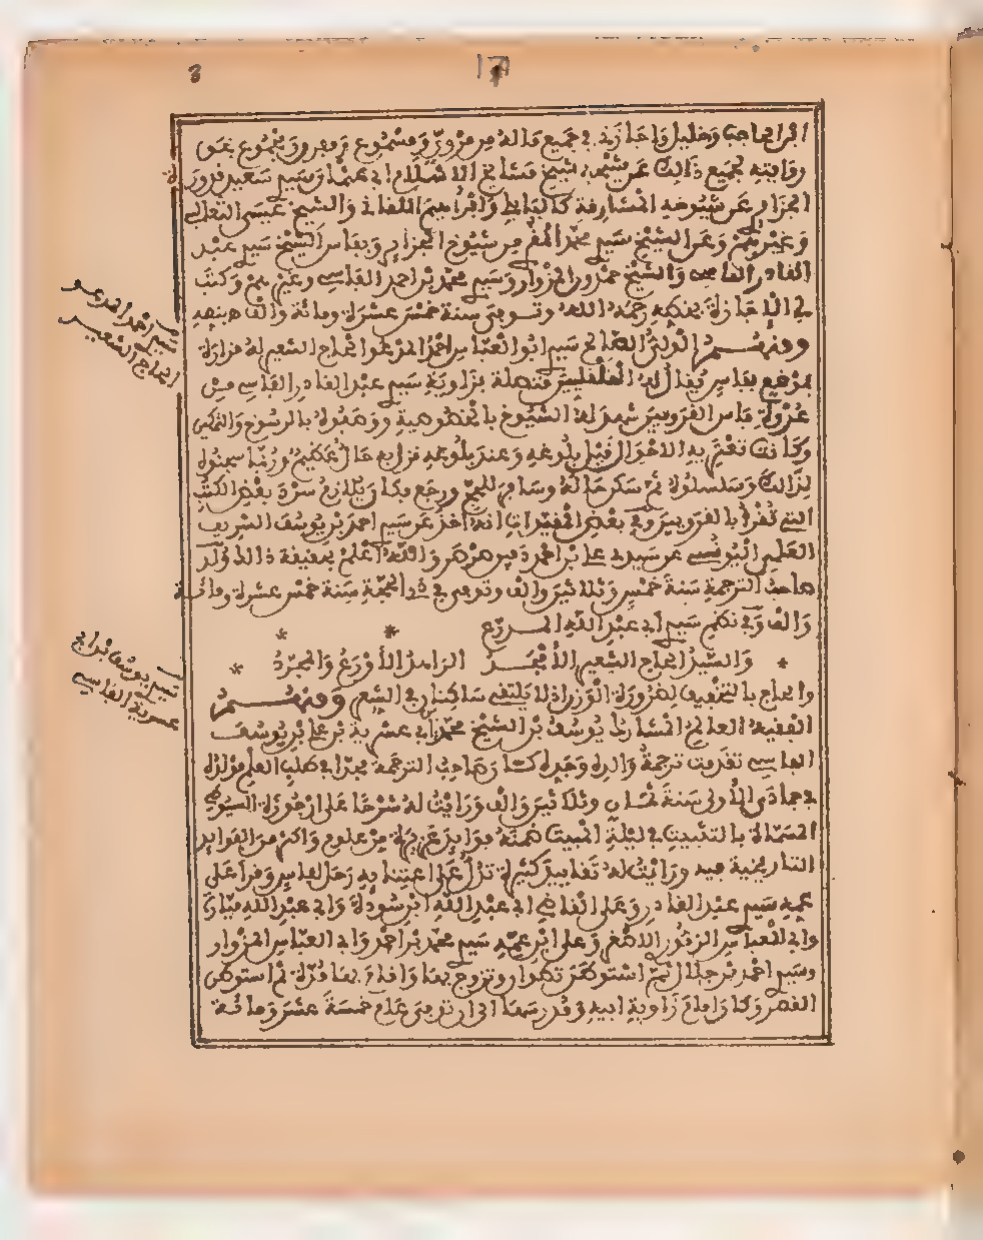 3
17
ابن الحاجب وخليل واجازني في جميع ماله من مروي ومسموع ومفروء ومجموع بحق
روايته لجميع ذالك عن شيخه شيخ مشايخ الاسلام ابي عثمان سيدي سعيد قدورة
الجزاير عن شيوخه المشارفة كالبابلي وابراهيم اللقاني والشيخ عيسى الثعالبي
وغيرهم وعن الشيخ سيدي محمد المقري من شيوخ الجزاير وبفاس الشيخ سيدي عبد
القادر الفاسي والشيخ حمدون المزوار وسيدي محمد بن احمد الفاسي وغيرهم وكتب
لي الاجازة بخطه رحمه الله وتوفي سنة خمس عشرة ومائة والف
ومنهم الولي الصالح سيدي ابو العباس احمد المدعو الحاج الشعير له مزارة
بموضع بفاس يقال له القلقليين متصلة بزاوية سيدي عبد القادر الفاسي من
عدوة فاس القرويين شهد له الشيوخ بالخصوصية ووصفوه بالرسوخ والتمكين
وكانت تعتريه الاحوال قبل بلوغه وعند بلوغه نزل به حال عظيم وربما سجنوه
لذالك وسلسلوه ثم سكن حاله وسافر للحج ورجع وكان يلازم سرد بعض الكتب
التي تقرأ بالقرويين وفي بعض التقييدات انه اخذ عن سيدي احمد بن يوسف الشريف
العلمي اليونسي عن سيدي علي بن احمد دفين صرصر والله اعلم بحقيقة ذالك ولد
صاحب الترجمة سنة خمس وثلاثين والف وتوفي في ذي الحجة سنة خمس عشرة ومائة
والف وفي نظم سيدي ابي عبد الله المدرع
والسيد الحاج الشعير الافجد الزاهد الاورع والمجرد
والحاج بالتخفيف لضرورة الوزن اذ لا يلتقي ساكنان في الشعر ومنهم
الفقيه العالم المشارك يوسف بن الشيخ محمد ابي عسرية بن علي بن يوسف
الفاسي تقدمت ترجمة والده وجده كما وصاحب الترجمة ممن ابي طلب العلم مولده
في جمادى الاولى سنة ثمان وثلاثين والف ورأيت له شرحا على ارجوزة السيوطي
المسماة بالتثبيت في ليلة المبيت ضمنه فوايد غزيرة من علوم واكثر من الفوايد
التاريخية فيه ورأيت له تقاييد كثيرة تدل على اعتنايه رحل لفاس وقرأ على
عمه سيدي عبد القادر وعلى القاضي ابي عبد الله ابن سودة وابي عبد الله ميارة
وابي العباس الزموري الاصغر وعلى ابن عمه سيدي محمد بن احمد وابي العباس المزوار
وسيدي احمد بن جلال ثم استوطن تطوان وتزوج بها واقام بها مدة ثم استوطن
القصر وكان واقام زاوية ابيه وقدر سها الى ان توفي عام خمسة عشر ومائة
سيدي احمد المدعو
الحاج الشعير
سيدي يوسف بن ابي
عسرية الفاسي